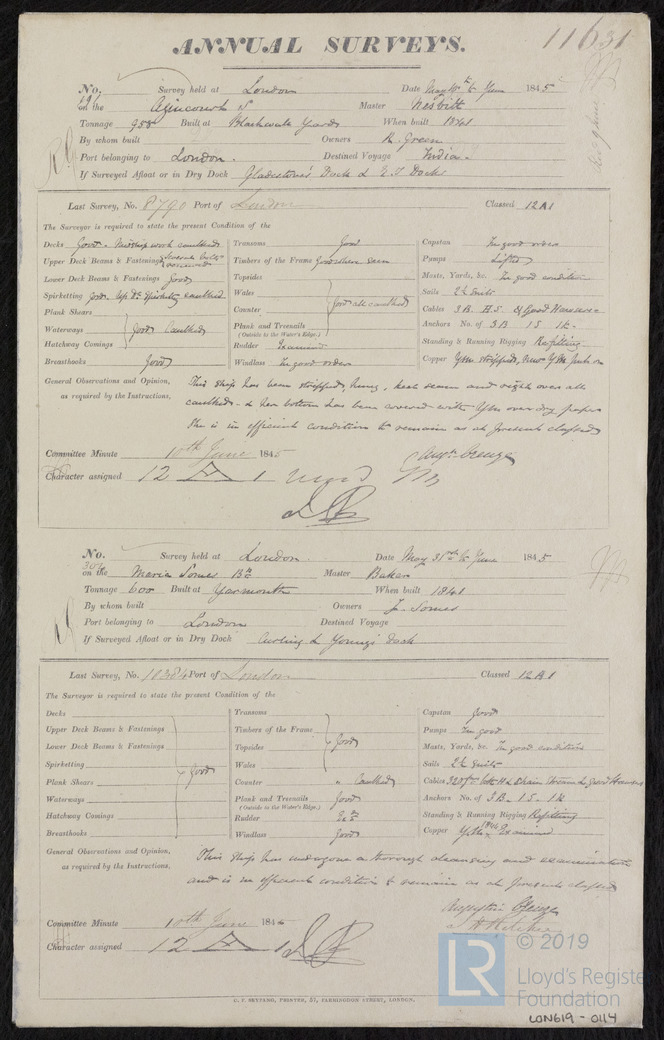 ANNUAL SURVEYS. 11631
No. Survey held at London Date 1845
on the Agincourt S Master Nesbitt
Tonnage 958 Built at Blackwall Yard When built 1841
By whom built Owners R. Green
Port belonging to London. Destined Voyage India
If Surveyed Afloat or in Dry Dock Gladstone's Dock & E.I Docks
Last Survey, No. 8790 Port of London Classed 12A1
The Surveyor is required to state the present Condition of the
Decks Good. Midship work caulked Transoms Good Capstan In good order
Upper Deck Beams & Fastenings several bolts renewed Timbers of the Frame Good where seen Pumps Lifted
Lower Deck Beams & Fastenings Good Topsides Masts, Yards, &c. In good condition
Spirketting Good. caulked Wales Sails 2½ Suits
Plank Shears Counter Good all caulked Cables 3 B. H.S. & Good Hawsers
Waterways Good Caulked Plank and Treenails (Outside to the Water's Edge.) Anchors No. of 3B 1S 1K
Hatchway Comings Rudder Examined Standing & Running Rigging Refitting
Breasthooks Good Windlass In good order Copper Y.M. stripped, new Y.M. put on
General Observations and Opinion, This Ship has been stripped, keel seam and right over all
as required by the Instructions, caulked. & her bottom has been covered with Y.M. over dry paper
She is in efficient condition to remain as at present classed
Committee Minute 10th June 1845 Augn. Creuze
Character assigned 12 A 1
No. Survey held at London. Date May 31st to June 1845
306
on the Maria Somes Bk Master Baker
Tonnage 600 Built at Yarmouth When built 1841
By whom built Owners J. Somes
Port belonging to London Destined Voyage
If Surveyed Afloat or in Dry Dock Curling & Young's Dock
Last Survey, No. 10384 Port of London Classed 12A1
The Surveyor is required to state the present Condition of the
Decks Transoms Capstan Good
Upper Deck Beams & Fastenings Timbers of the Frame Pumps In good
Lower Deck Beams & Fastenings Topsides Good Masts, Yards, &c. In good condition
Spirketting Wales Sails 2½ Suits
Plank Shears Good Counter " Caulked Cables 320 fms Chain Stream & Good Hawsers
Waterways Plank and Treenails (Outside to the Water's Edge.) Good Anchors No. of 3B. 1S. 1K
Hatchway Comings Rudder Exd Standing & Running Rigging Refitting
Breasthooks Windlass Good Copper Y.M. Examined
General Observations and Opinion, This Ship has undergone a thorough cleansing and examination
as required by the Instructions. and is in efficient condition to remain as at present classed
Augustin Creuze
Committee Minute 10th June 184
Character assigned 12 A 1
C. F. SEYFANG, PRINTER, 57, FARRINGDON STREET, LONDON.
LR © 2019
Lloyd's Register
Foundation
LON619-0114